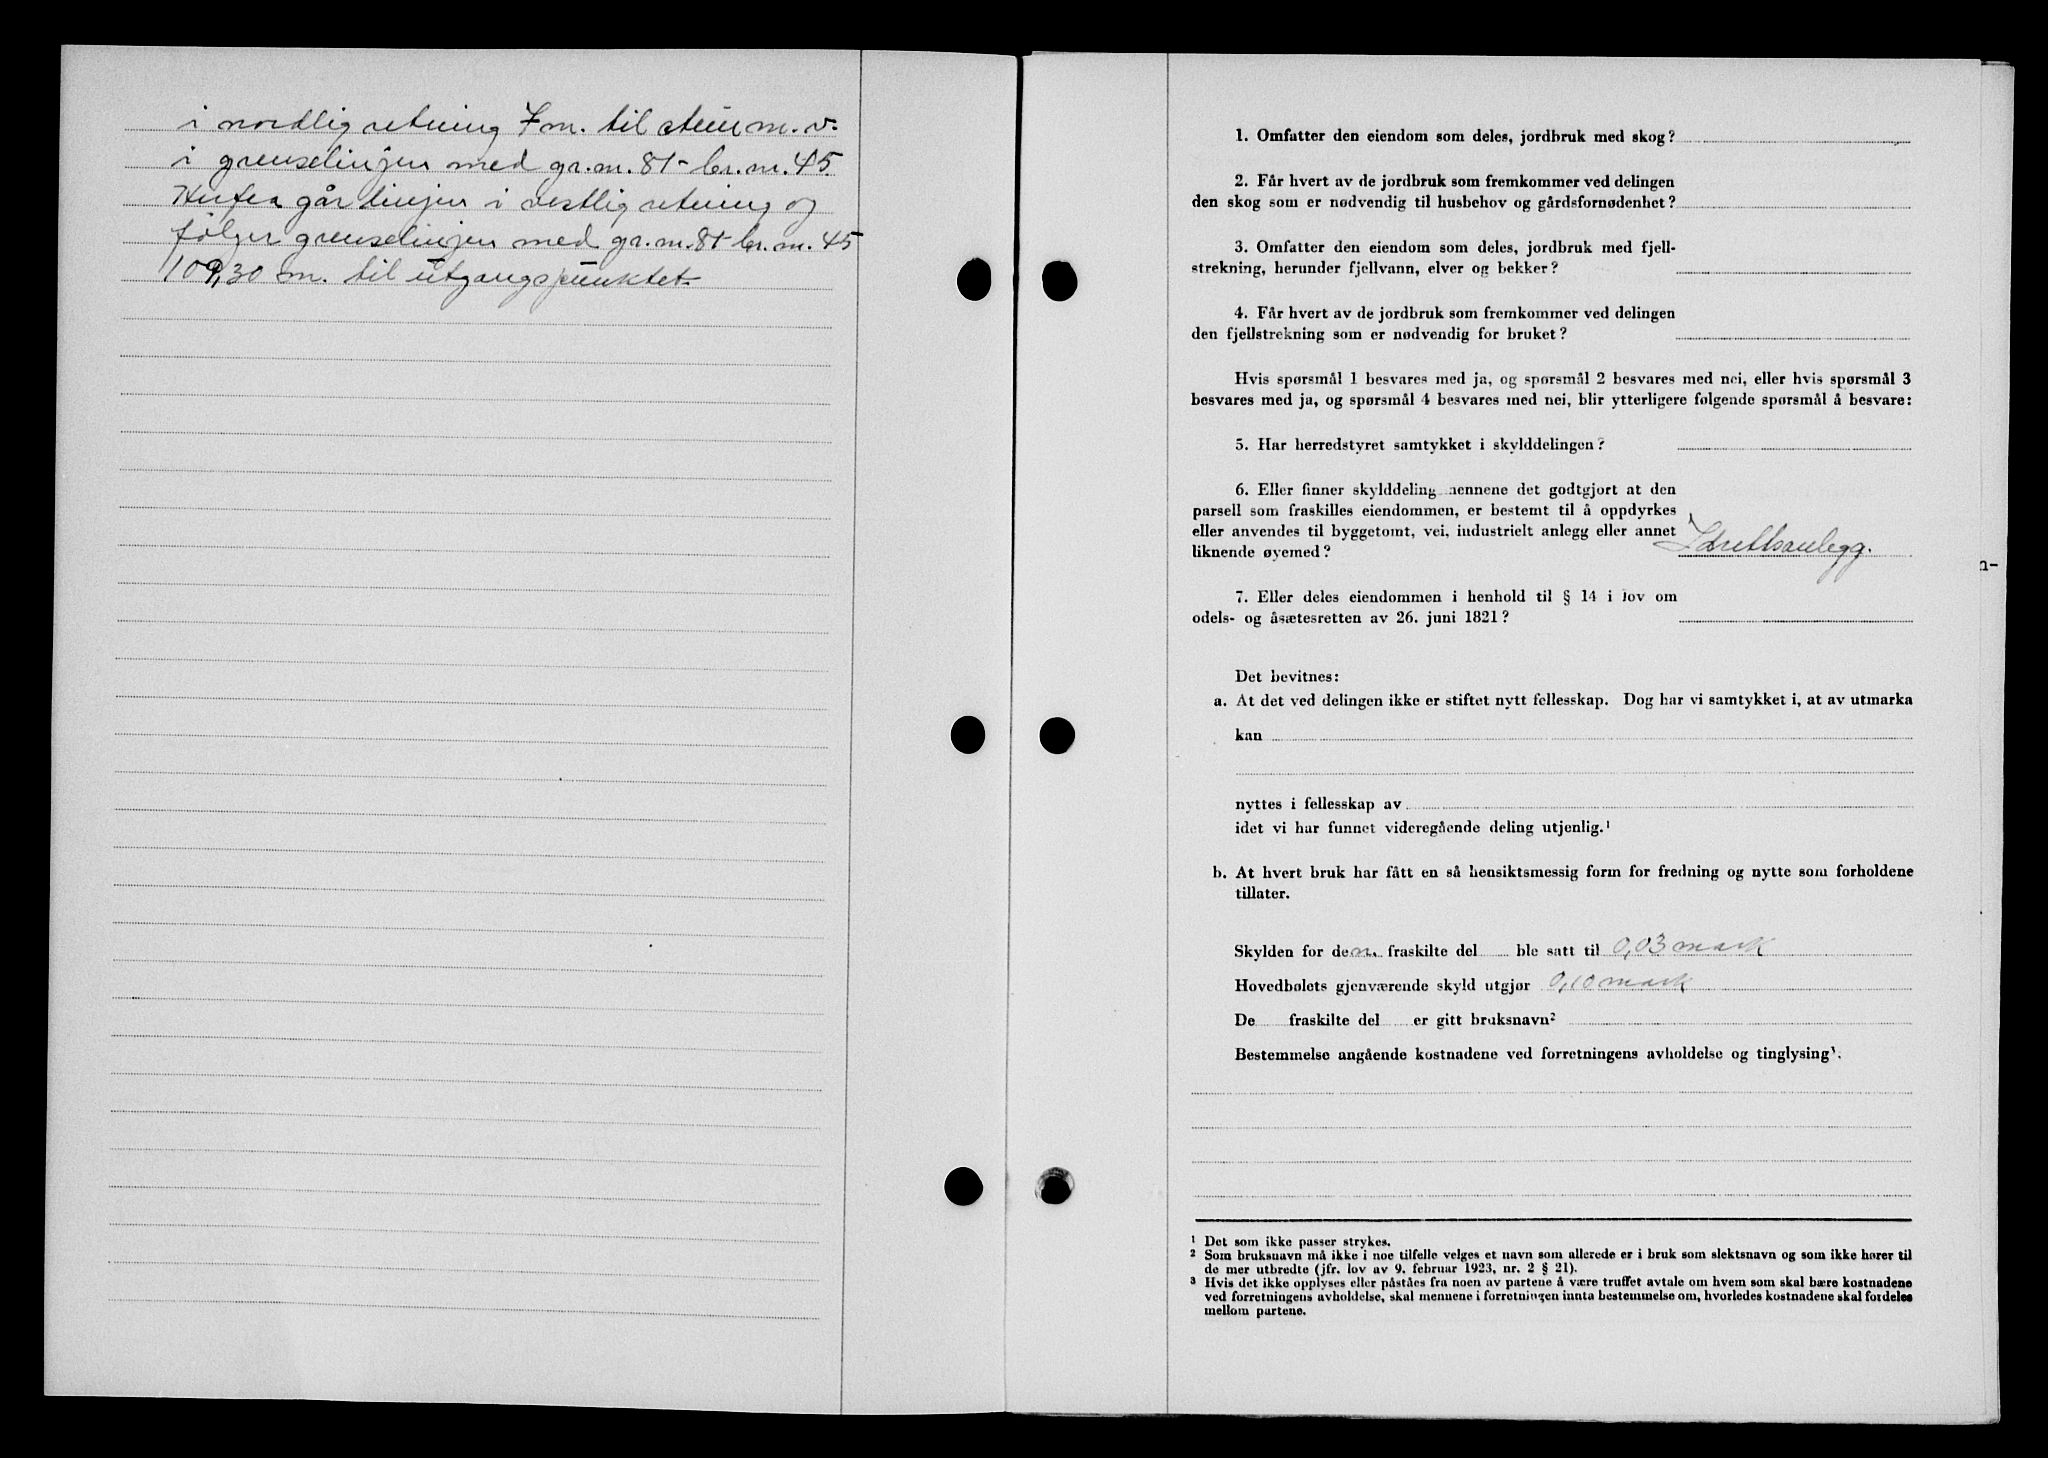 i nordlig retning 7 m. til stein m. v.
i grenselinjen med gr.nr. 81 br.nr. 45.
Herfra går linjen i vestlig retning og
følger grenselinjen med gr.nr. 81 br.nr. 45
109,30 m. til utgangspunktet
1. Omfatter den eiendom som deles, jordbruk med skog?
2. Får hvert av de jordbruk som fremkommer ved delingen
den skog som er nødvendig til husbehov og gårdsfornødenhet?
3. Omfatter den eiendom som deles, jordbruk med fjell-
strekning, herunder fjellvann, elver og bekker?
4. Får hvert av de jordbruk som fremkommer ved delingen
den fjellstrekning som er nødvendig for bruket?
Hvis spørsmål 1 besvares med ja, og spørsmål 2 besvares med nei, eller hvis spørsmål 3
besvares med ja, og spørsmål 4 besvares med nei, blir ytterligere følgende spørsmål å besvare:
5. Har herredstyret samtykket i skylddelingen?
6. Eller finner skylddelingsmennene det godtgjort at den
parsell som fraskilles eiendommen, er bestemt til å oppdyrkes
eller anvendes til byggetomt, vei, industrielt anlegg eller annet
liknende øyemed? Idrettsanlegg.
n-
7. Eller deles eiendommen i henhold til § 14 i lov om
odels- og åsætesretten av 26. juni 1821?
Det bevitnes:
a. At det ved delingen ikke er stiftet nytt fellesskap. Dog har vi samtykket i, at av utmarka
kan
nyttes i fellesskap av
idet vi har funnet videregående deling utjenlig.¹
b. At hvert bruk har fått en så hensiktsmessig form for fredning og nytte som forholdene
tillater.
Skylden for den fraskilte del ble satt til 0,03 mark
Hovedbølets gjenværende skyld utgjør 0,10 mark
De fraskilte del er gitt bruksnavn²
Bestemmelse angående kostnadene ved forretningens avholdelse og tinglysing³.
¹ Det som ikke passer strykes.
² Som bruksnavn må ikke i noe tilfelle velges et navn som allerede er i bruk som slektsnavn og som ikke hører til
de mer utbredte (jfr. lov av 9. februar 1923, nr. 2 § 21).
³ Hvis det ikke opplyses eller påståes fra noen av partene å være truffet avtale om hvem som skal bære kostnadene
ved forretningens avholdelse, skal mennene i forretningen innta bestemmelse om, hvorledes kostnadene skal fordeles
mellom partene.